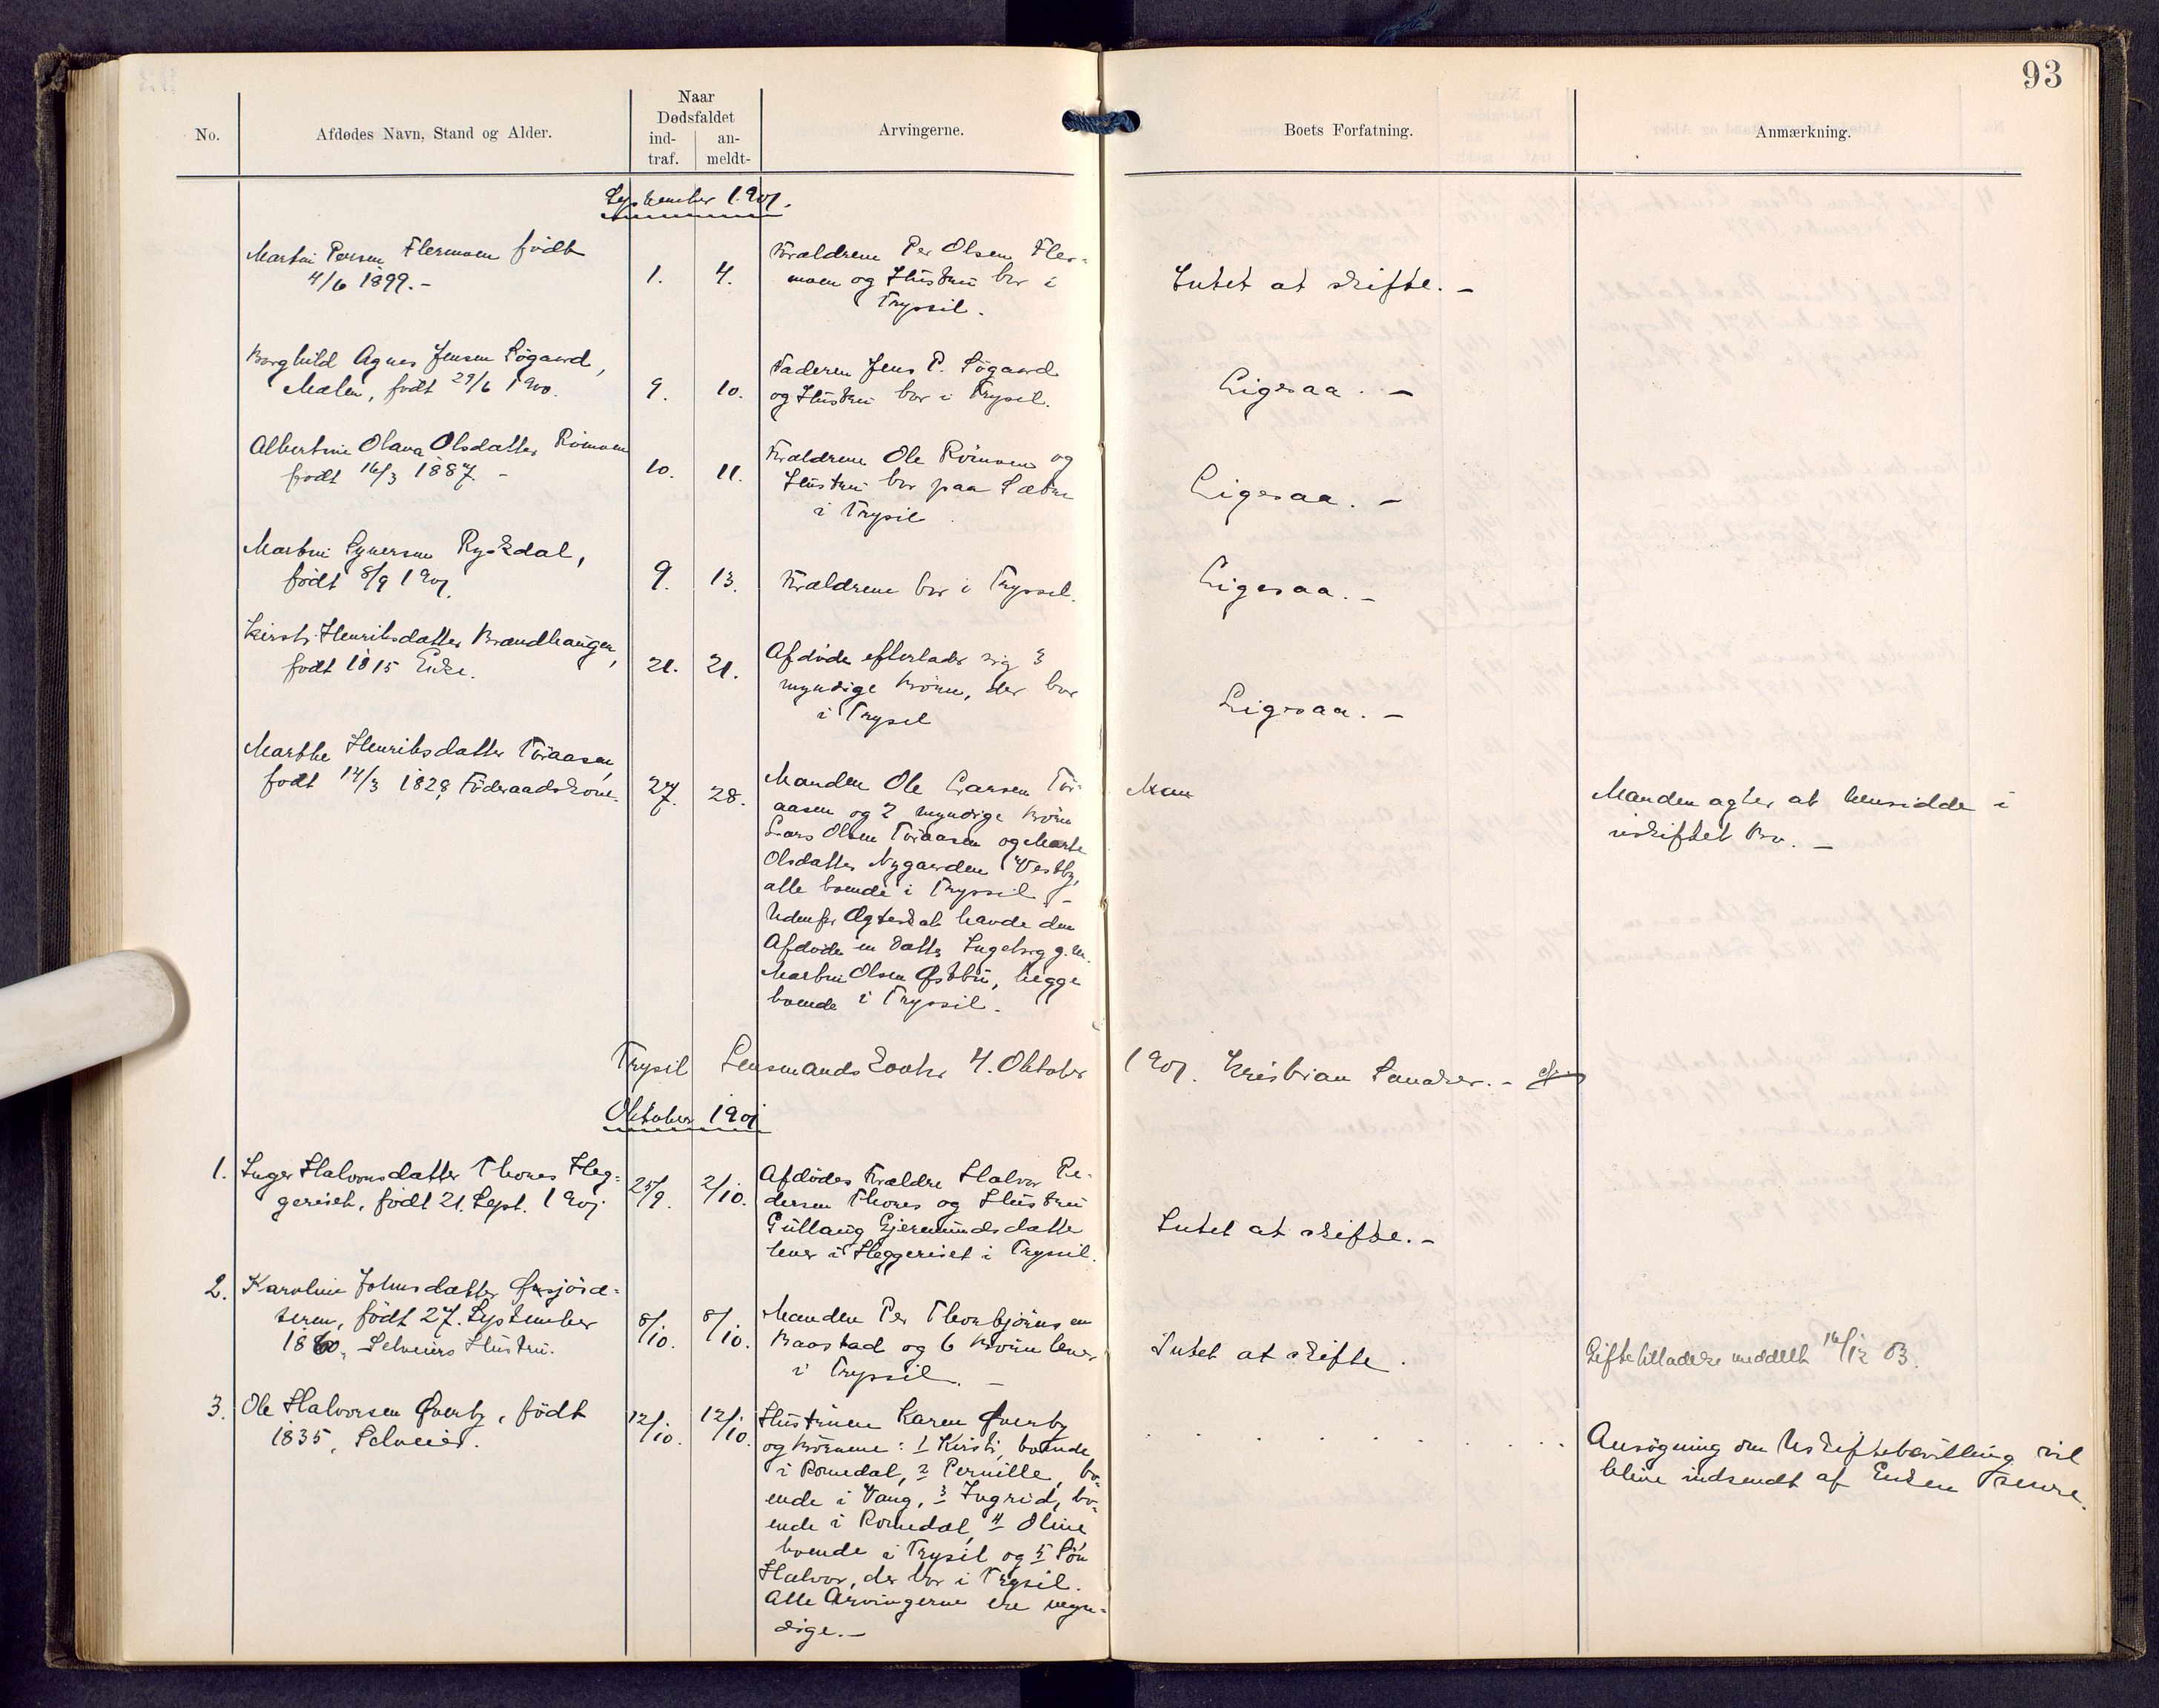 93
No.
Afdødes Navn, Stand og Alder.
Naar
Dødsfaldet
ind-
traf.
an-
meldt-
Arvingerne.
Boets Forfatning.
Anmærkning.
September 1901.
Martin Persen Flermoen født
4/6 1899. -
1. 4.
Forældrene Per Olsen Fler-
moen og Hustru bor i
Trysil.
Intet at skifte. -
Borghild Agnes Jensen Søgaard,
Malen, født 29/6 1900.
9. 10.
Faderen Jens P. Søgaard
og Hustru bor i Trysil.
Ligesaa. -
Albertine Olava Olsdatter Römoen
født 16/3 1887. -
10. 11.
Forældrene Ole Römoen og
Hustru bor paa Sætre
i Trysil.
Ligesaa. -
Martin Syversen Ryskdal,
født 8/9 1901.
9. 13.
Forældrene bor i Tryssil.
Ligesaa. -
Kirsti Henriksdatter Brændhaugen,
født 1815 Enke.
21. 21.
Afdöde efterlader sig 3
myndige Börn, der bor
i Trysil
Ligesaa. -
Marthe Henriksdatter Töraasen,
født 14/3 1828, Föderaadskone.
27. 28.
Manden Ole Larsen Tör-
aasen og 2 myndige Börn
Lars Olsen Töraasen og Marte
Olsdatter Nygaarden Vestby,
alle boende i Tryssil. -
Udenfor Ægteskab havde den
Afdöde en Datter Ingeborg g. m.
Martin Olsen Østbu, begge
boende i Tryssil.
Man
Manden agter at hensidde i
uskiftet Bo. -
Trysil Lensmandskontor 4. Oktober 1901. Kristian Sandker. -
Oktober 1901
1. Inger Halvorsdatter Thores Heg-
geriset, født 21. Sept. 1901.
25/9. 2/10.
Afdødes Forældre Halvor Pe-
dersen Thores og Hustru
Gullaug Gjermundsdatter
lever i Heggeriset i Trysil.
Intet at skifte. -
2. Karoline Johnsdatter
født 27. September
1860, Selveiers Hustru.
8/10. 8/10.
Manden Per Thorbjörnsen
Baastad og 6 Börn lever
i Tryssil. -
Intet at skifte.
Giftetilladelse meddelt 16/12 03.
3. Ole Halvorsen Øverby, født
1835, Selveier.
12/10. 12/10.
Hustruen Karen Øverby
og Börnene: 1 Kirsti, boende
i Romedal, 2 Pernille, bo-
ende i Vang, 3 Ingrid, bo-
ende i Romedal, 4 Oline
boende i Trysil og 5 Sön
Halvor, der bor i Trysil.
Alle Arvingerne ere myn-
dige. -
Ansögning om Uskiftebevilling vil
blive indsendt af Enken senere.